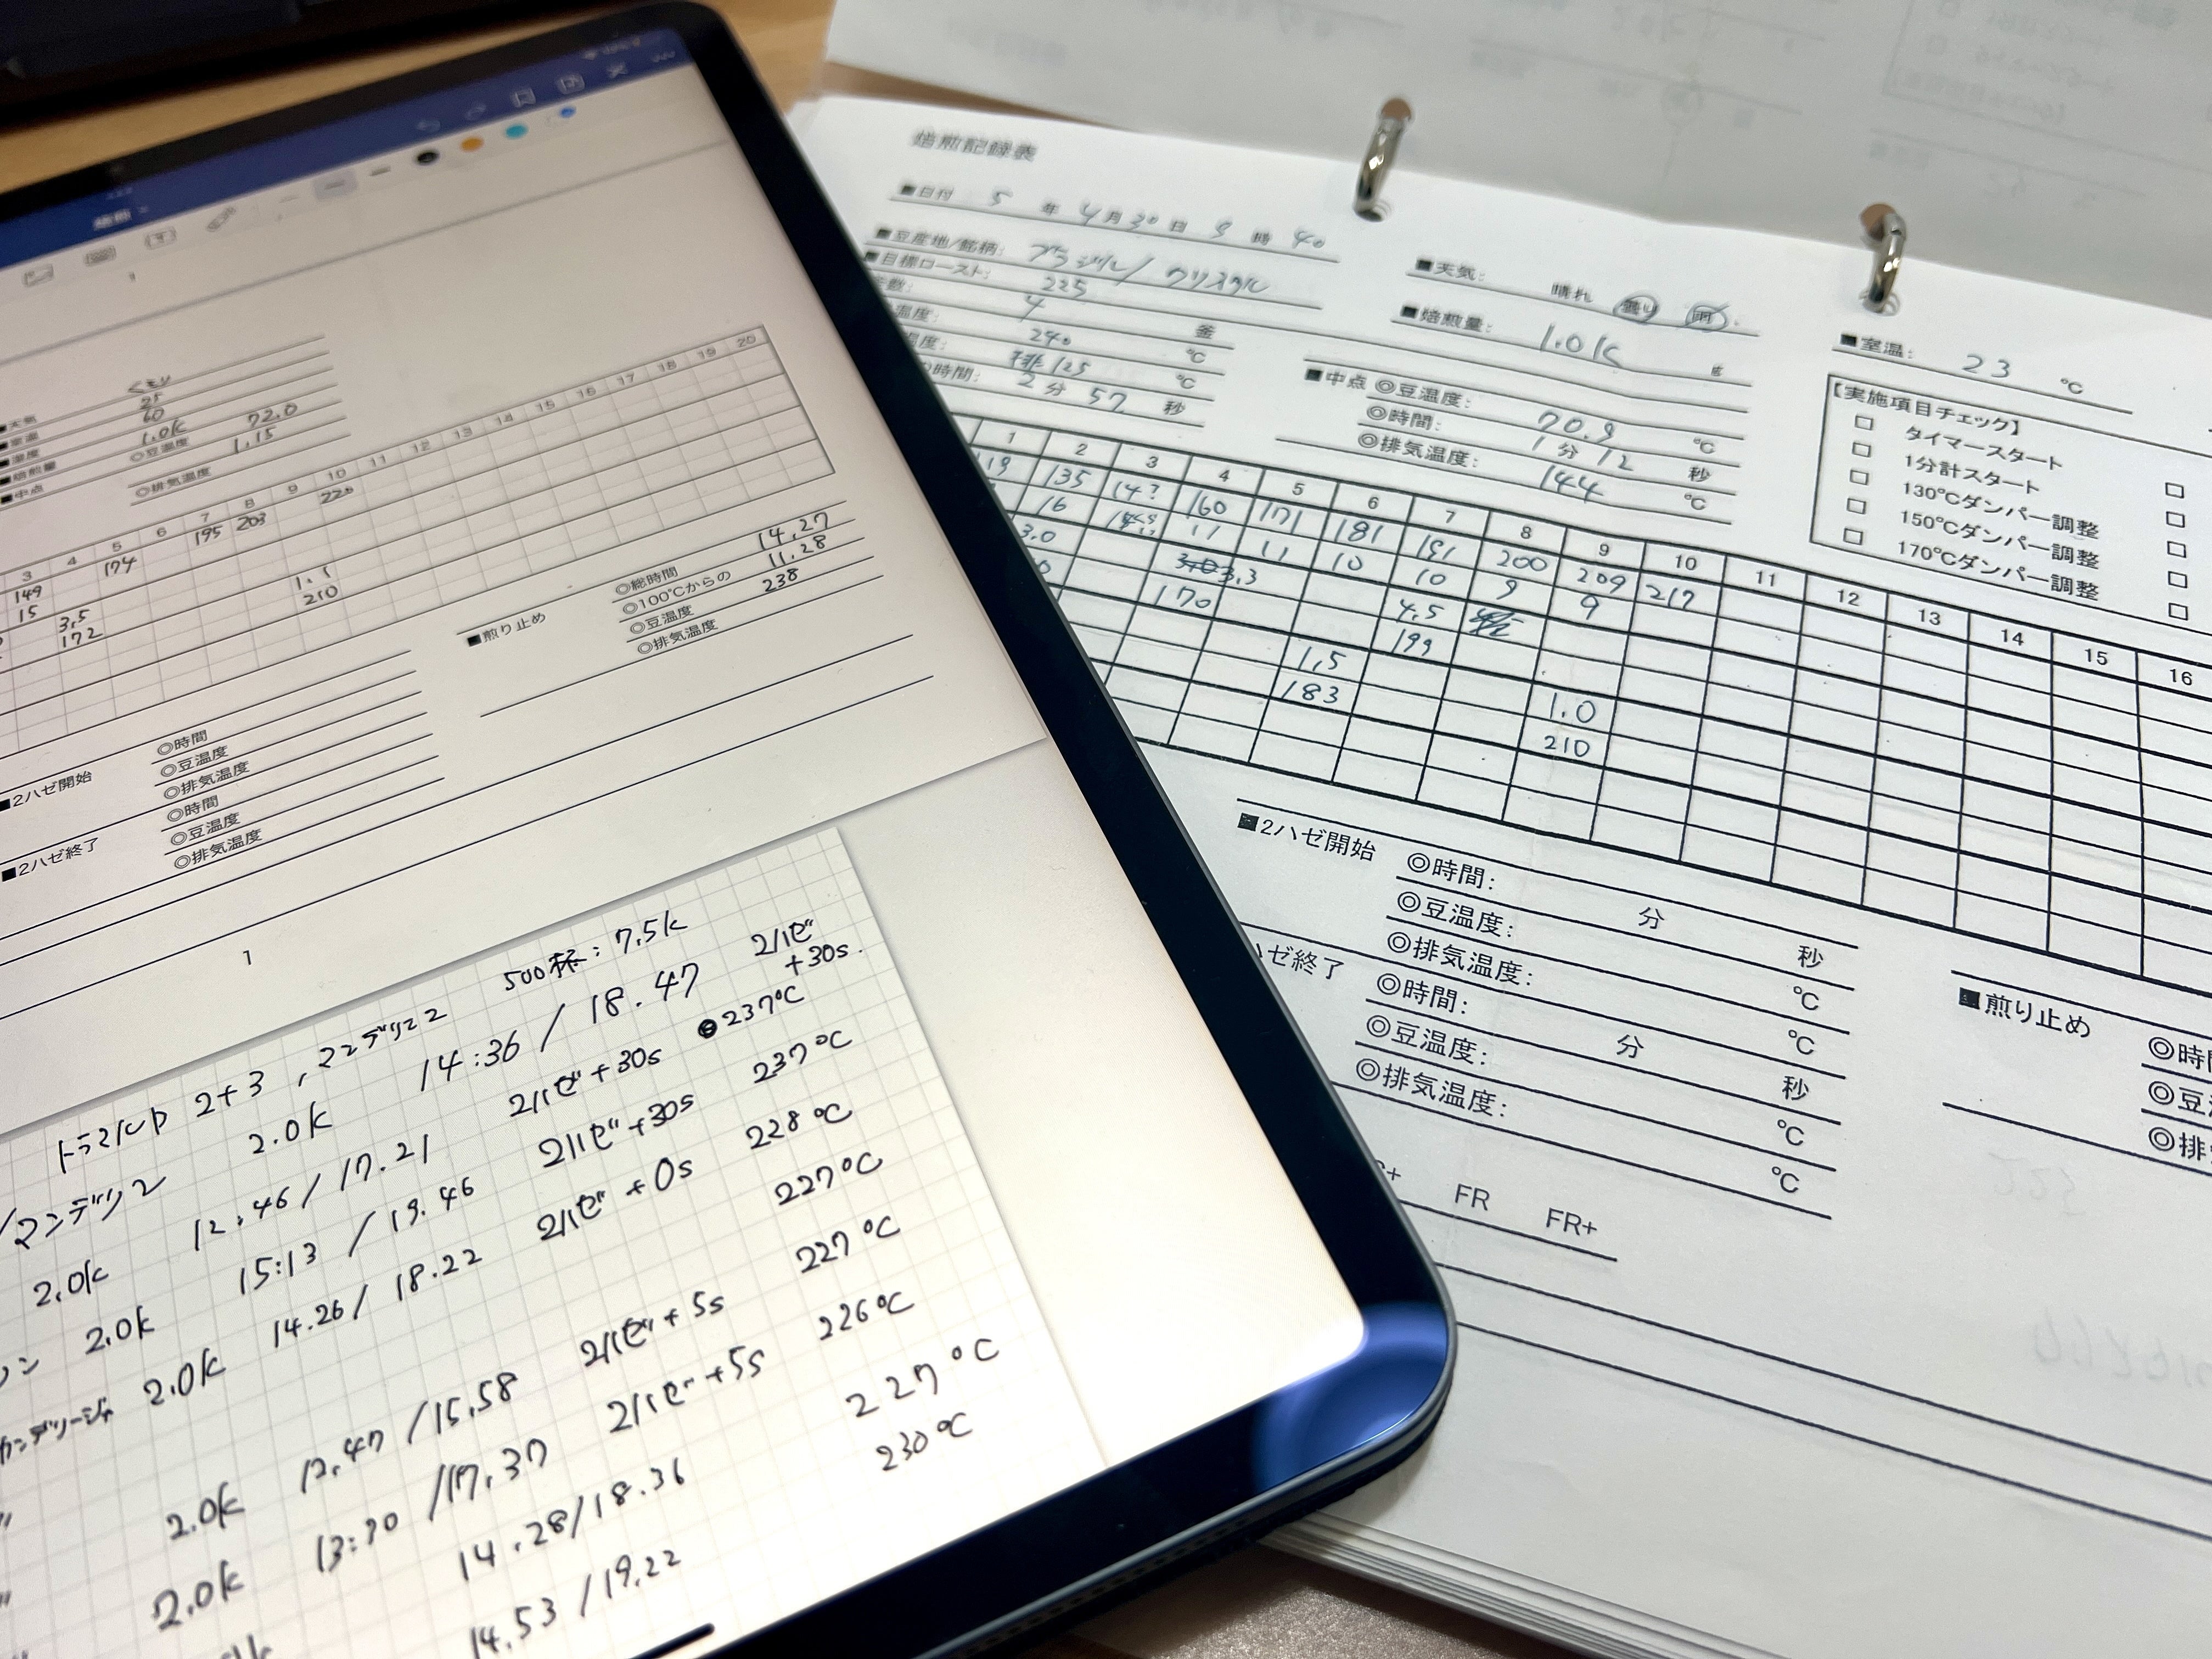 ■天気 くもり
■室温 25
■湿度 60
■焙煎量 1.0k
■中点 ◎豆温度 72.0
1.15
◎排気温度
3 4 5 6 7 8 9 10 11 12 13 14 15 16 17 18 19 20
149 174 195 203 220
15
3.5
172 210
◎総時間 14.27
◎100℃からの 11.28
■煎り止め ◎豆温度 238
◎排気温度
■2ハゼ開始 ◎時間
◎豆温度
◎排気温度
■2ハゼ終了 ◎時間
◎豆温度
◎排気温度
1
2+3 , マンデリン2 500杯:7.5k
マンデリン 2.0k 14:36 / 18.47 2ハゼ+30s.
2.0k 12:46 / 17.21 2ハゼ+30s 237℃
2.0k 15:13 / 19.46 2ハゼ+30s 237℃
2.0k 14.26 / 18.22 2ハゼ+0s 228℃
227℃
2.0k 12.47 / 15.58 2ハゼ+5s 227℃
2.0k /17.37 2ハゼ+5s 226℃
14.28/18.36 227℃
14.53 /19.22 230℃
焙煎記録表
■日付 5 年 4月30日 9 時 40
■豆産地/銘柄: ブラジル/クリスタル
■天気: 晴れ 曇り 雨
■目標ロースト: 225
数: 4 釜
■焙煎量: 1.0k
■室温: 23 ℃
温度: 240 ℃
温度: 排125 ℃
時間: 2分 57 秒
■中点 ◎豆温度: 70.9 ℃
◎時間: 1分 12 秒
◎排気温度: 144 ℃
【実施項目チェック】
□ タイマースタート
□ 1分計スタート
□ 130℃ダンパー調整
□ 150℃ダンパー調整
□ 170℃ダンパー調整
1 2 3 4 5 6 7 8 9 10 11 12 13 14 15 16
119 135 160 171 181 191 200 209 217
16 11 11 10 10 9 9
3.0 3.3 4.5
170 199
1.5 1.0
183 210
■2ハゼ開始 ◎時間: 分 秒
◎豆温度: ℃
◎排気温度: ℃
ハゼ終了 ◎時間: 分 秒
◎豆温度: ℃
◎排気温度: ℃
■煎り止め ◎時間
◎豆温
◎排
FR FR+